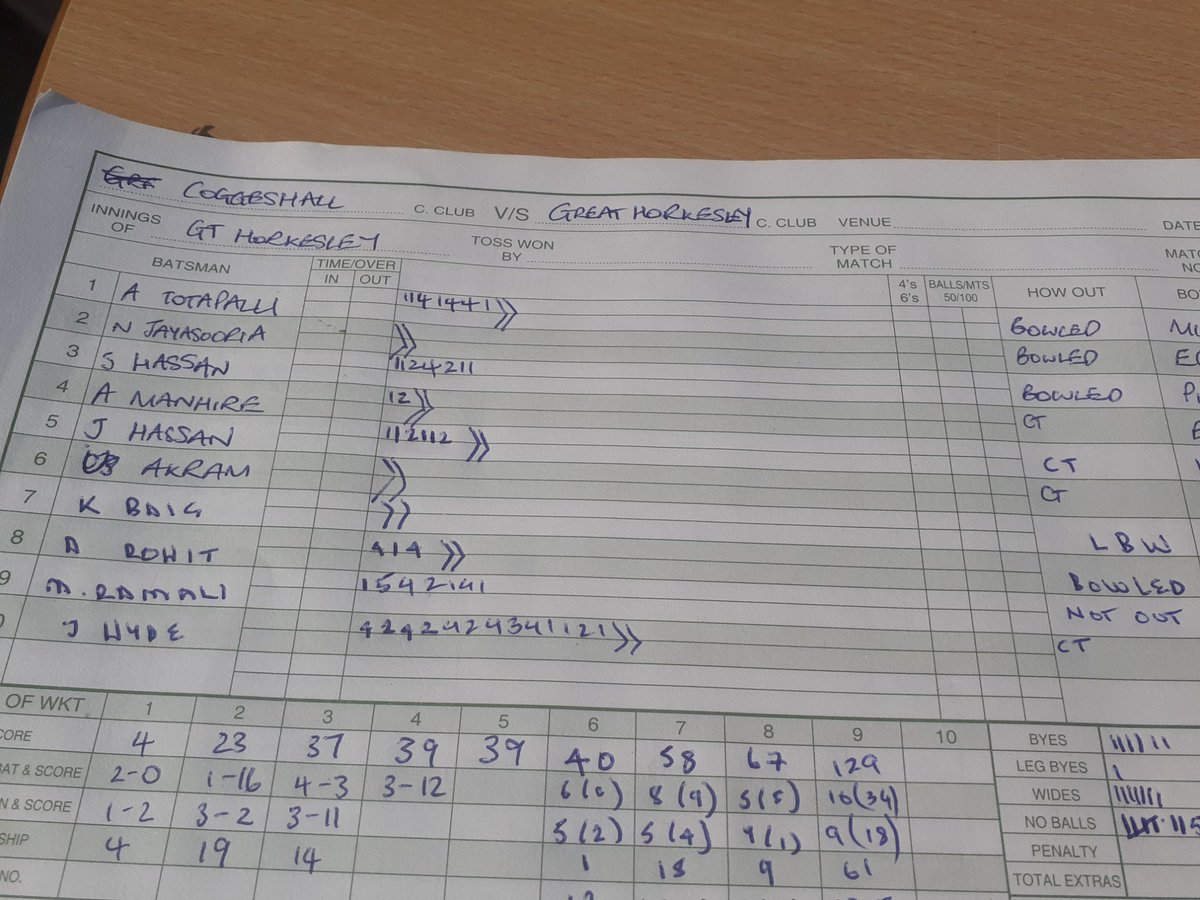 COGGESHALL C. CLUB V/S GREAT HORKESLEY C. CLUB VENUE DATE
INNINGS OF GT HORKESLEY TOSS WON BY TYPE OF MATCH
BATSMAN TIME/OVER IN OUT 4's 6's BALLS/MTS 50/100 HOW OUT
1 A TOTAPALLI 1141441 BOWLED
2 N JAYASOORIA BOWLED
3 S HASSAN 1124211 BOWLED
4 A MANHIRE 12 CT
5 J HASSAN 112112 CT
6 AKRAM CT
7 K BAIG LBW
8 A ROHIT 414 BOWLED
9 M. RAMALI 1542141 NOT OUT
J HYDE 42424243411121 CT
OF WKT 1 2 3 4 5 6 7 8 9 10
4 23 37 39 39 40 58 67 129
& SCORE 2-0 1-16 4-3 3-12 6(0) 8(9) 5(8) 10(34)
& SCORE 1-2 3-2 3-11 5(2) 5(4) 9(1) 9(18)
4 19 14 1 18 9 61
NO.
BYES
LEG BYES
WIDES
NO BALLS
PENALTY
TOTAL EXTRAS